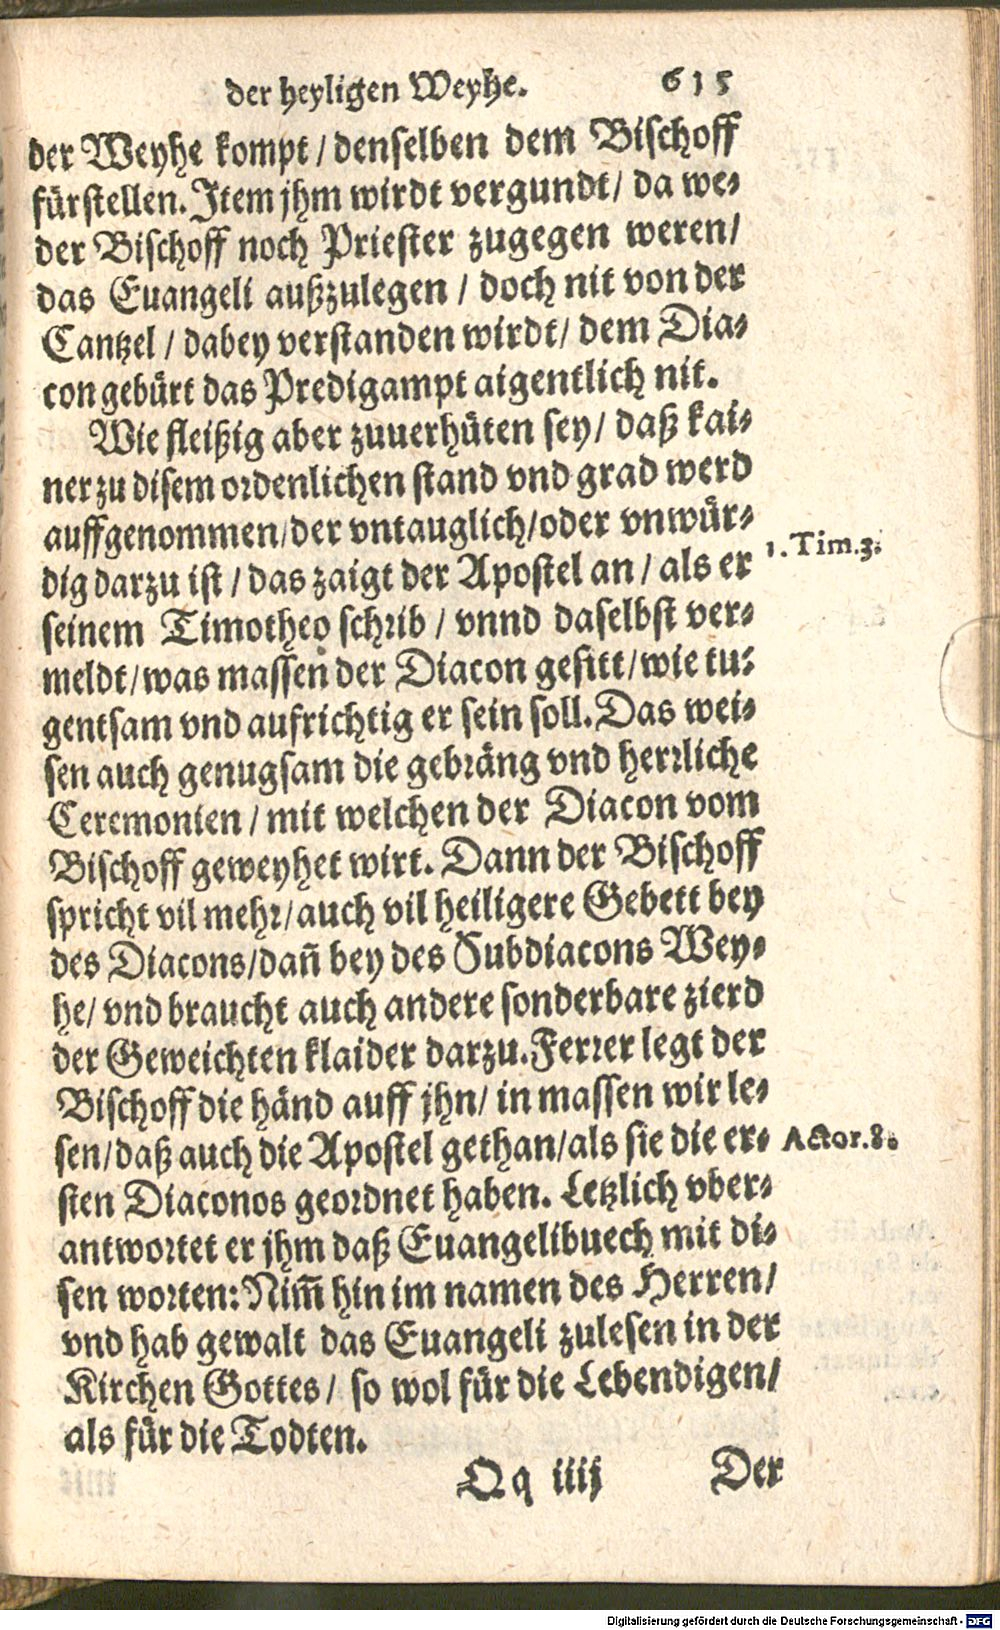 der heyligen Weyhe. 615
der Weyhe kompt / denselben dem Bischoff
fürstellen. Item jhm wirdt vergundt / da we-
der Bischoff noch Priester zugegen weren /
das Euangeli außzulegen / doch nit von der
Cantzel / dabey verstanden wirdt / dem Dia-
con gebürt das Predigampt aigentlich nit.
Wie fleißig aber zuuerhüten sey / daß kai-
ner zu disem ordenlichen stand vnd grad werd
auffgenommen / der vntauglich / oder vnwür-
dig darzu ist / das zaigt der Apostel an / als er
1. Tim. 3.
seinem Timotheo schrib / vnnd daselbst ver-
meldt / was massen der Diacon gesitt / wie tu-
gentsam vnd aufrichtig er sein soll. Das wei-
sen auch genugsam die gebräng vnd herrliche
Ceremonien / mit welchen der Diacon vom
Bischoff geweyhet wirt. Dann der Bischoff
spricht vil mehr / auch vil heiligere Gebett bey
des Diacons / dañ bey des Subdiacons Wey-
he / vnd braucht auch andere sonderbare zierd
der Geweichten klaider darzu. Ferrer legt der
Bischoff die händ auff jhn / in massen wir le-
sen / daß auch die Apostel gethan / als sie die er-
Actor. 8.
sten Diaconos geordnet haben. Letzlich vber-
antwortet er jhm daß Euangelibuech mit di-
sen worten: Nim̃ hin im namen des Herren /
vnd hab gewalt das Euangeli zulesen in der
Kirchen Gottes / so wol für die Lebendigen /
als für die Todten.
Qq iiij Der
Digitalisierung gefördert durch die Deutsche Forschungsgemeinschaft - DFG